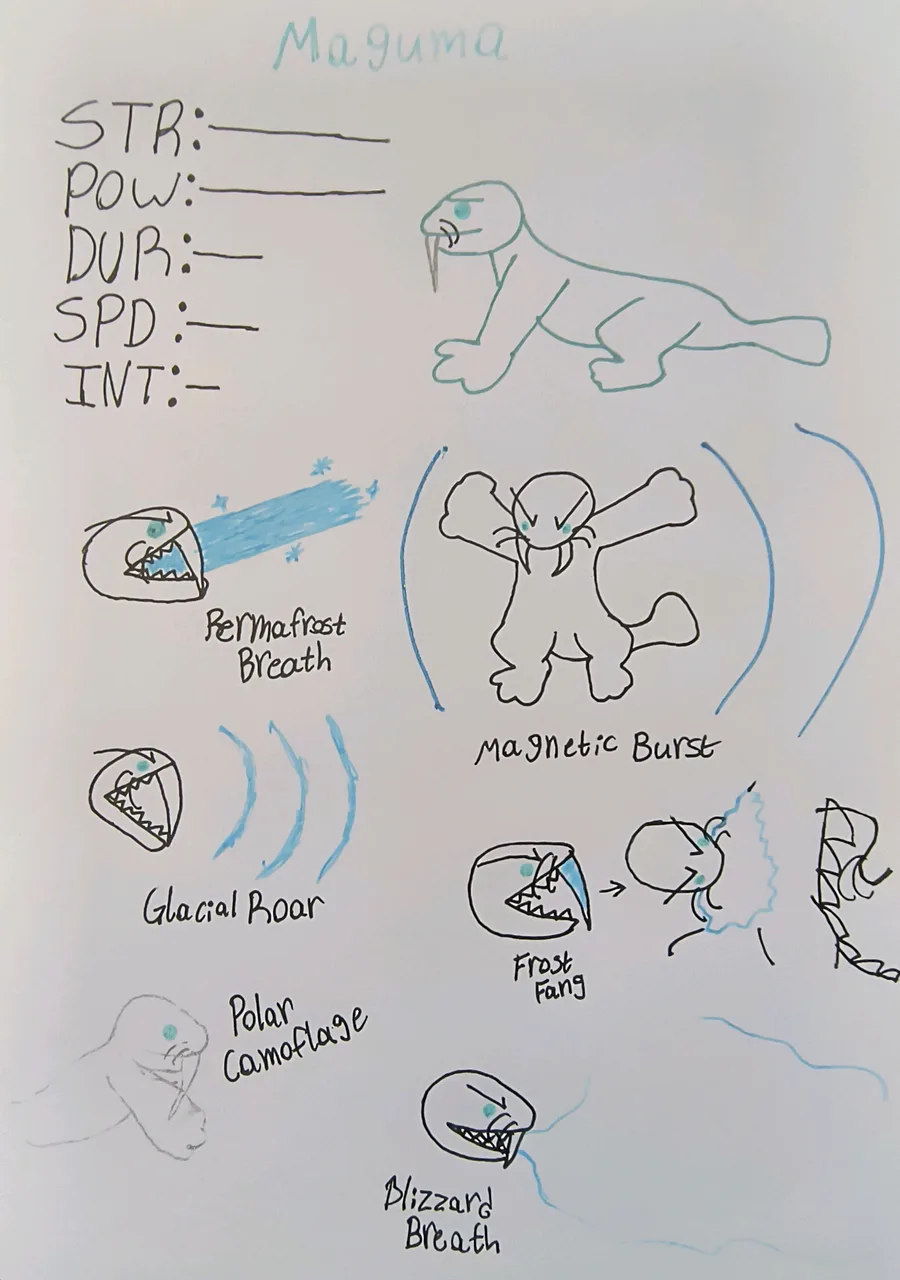 Maguma
STR:
POW:
DUR:
SPD:
INT:
Permafrost
Breath
Magnetic Burst
Glacial Roar
Frost
Fang
Polar
Camoflage
Blizzard
Breath